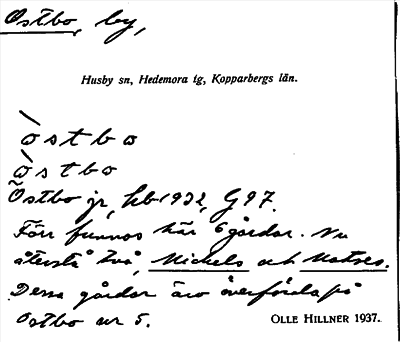 Ostbo, by,
Husby sn, Hedemora tg, Kopparbergs län.
òstbo
òstbo
Östbo jr, hb 1932, G 97.
Förr funnos här 6 gårdar. Nu
återstå två, Nickels och Matses.
Dessa gårdar äro överförda på
Ostbo nr 5.
OLLE HILLNER 1937.